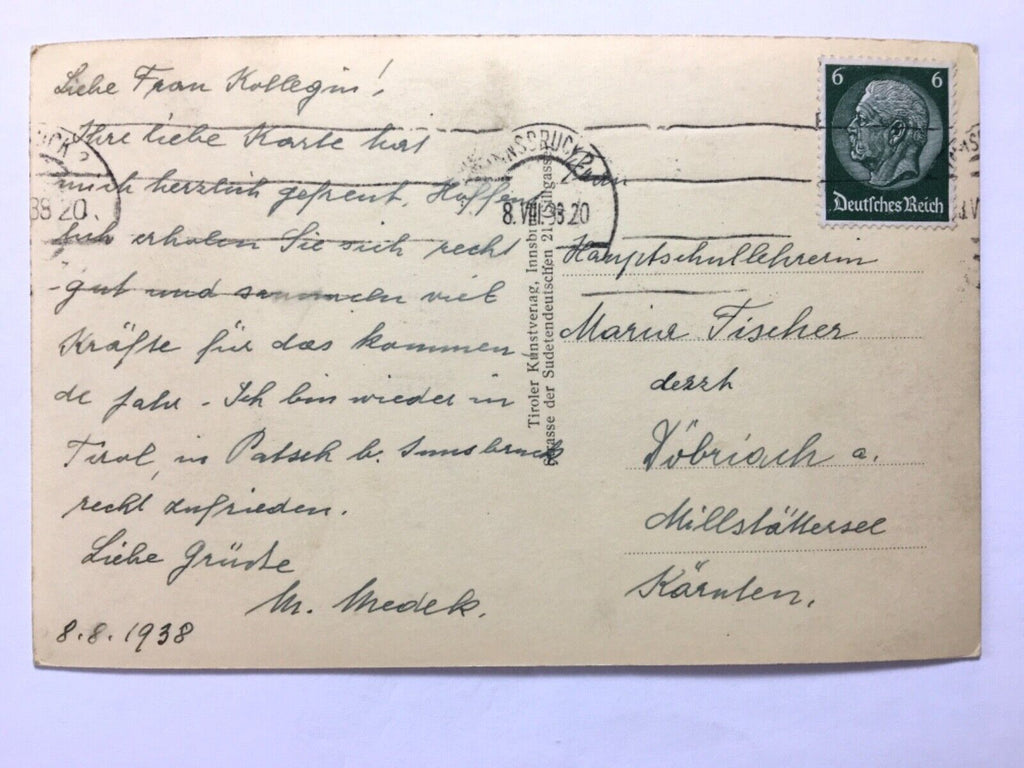 Liebe Frau Kollegin!
Ihre liebe Karte hat
mich herzlich gefreut. Hoffen
erholen Sie sich recht
gut und sammeln viel
Kräfte für das kommen-
de Jahr - Ich bin wieder in
Tirol, in Patsch b. Innsbruck
recht zufrieden.
Liebe Grüße
M. Medek.
8.8.1938
INNSBRUCK 2
8.VIII.38.20
38 20
Tiroler Kunstverlag, Innsbruck
Straße der Sudetendeutschen 21
6 6
Deutsches Reich
Frau
Hauptschullehrerin
Maria Fischer
derzt
Döbriach a.
Millstättersee
Kärnten.